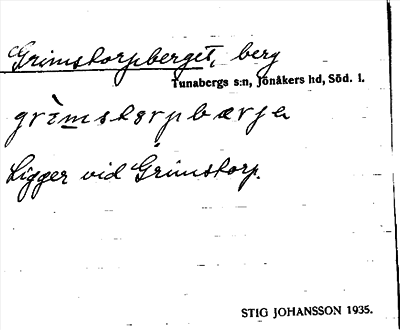 Grimstorpberget, berg
Tunabergs s:n, Jönåkers hd, Söd. l.
grimstorpbærjə
Ligger vid Grimstorp.
STIG JOHANSSON 1935.